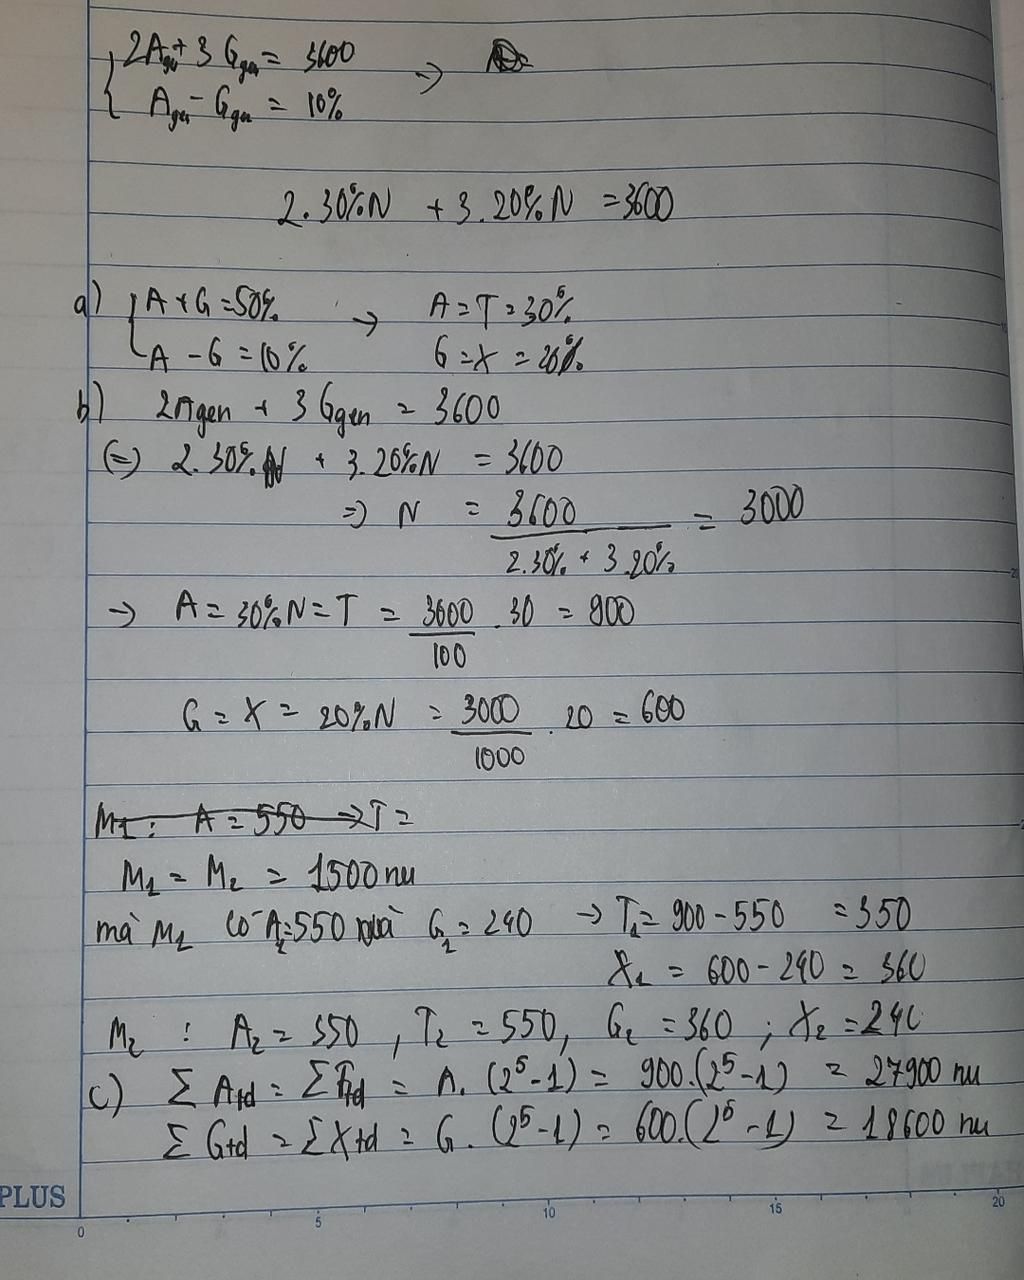 2Agen + 3 Ggen = 3600 →
Agen - Ggen = 10%
2.30%N + 3.20%N = 3600
a) A + G = 50% → A = T = 30%
A - G = 10% G = X = 20%
b) 2Agen + 3 Ggen = 3600
(=) 2.30%N + 3.20%N = 3600
=) N = 3600 = 3000
2.30% + 3.20%
→ A = 30%N = T = 3600 . 30 = 900
100
G = X = 20%N = 3000 . 20 = 600
1000
M1 : A = 550 → T =
M1 = M2 = 1500 nu
mà M1 có A1 = 550 G1 = 240 → T1 = 900 - 550 = 350
X1 = 600 - 240 = 360
M2 : A2 = 350 , T2 = 550, G2 = 360 ; X2 = 240
c) Σ Atd = Σ Ttd = A. (2⁵-1) = 900.(2⁵-1) = 27900 nu
Σ Gtd = Σ Xtd = G. (2⁵-1) = 600.(2⁵-1) = 18600 nu
PLUS
0 5 10 15 20